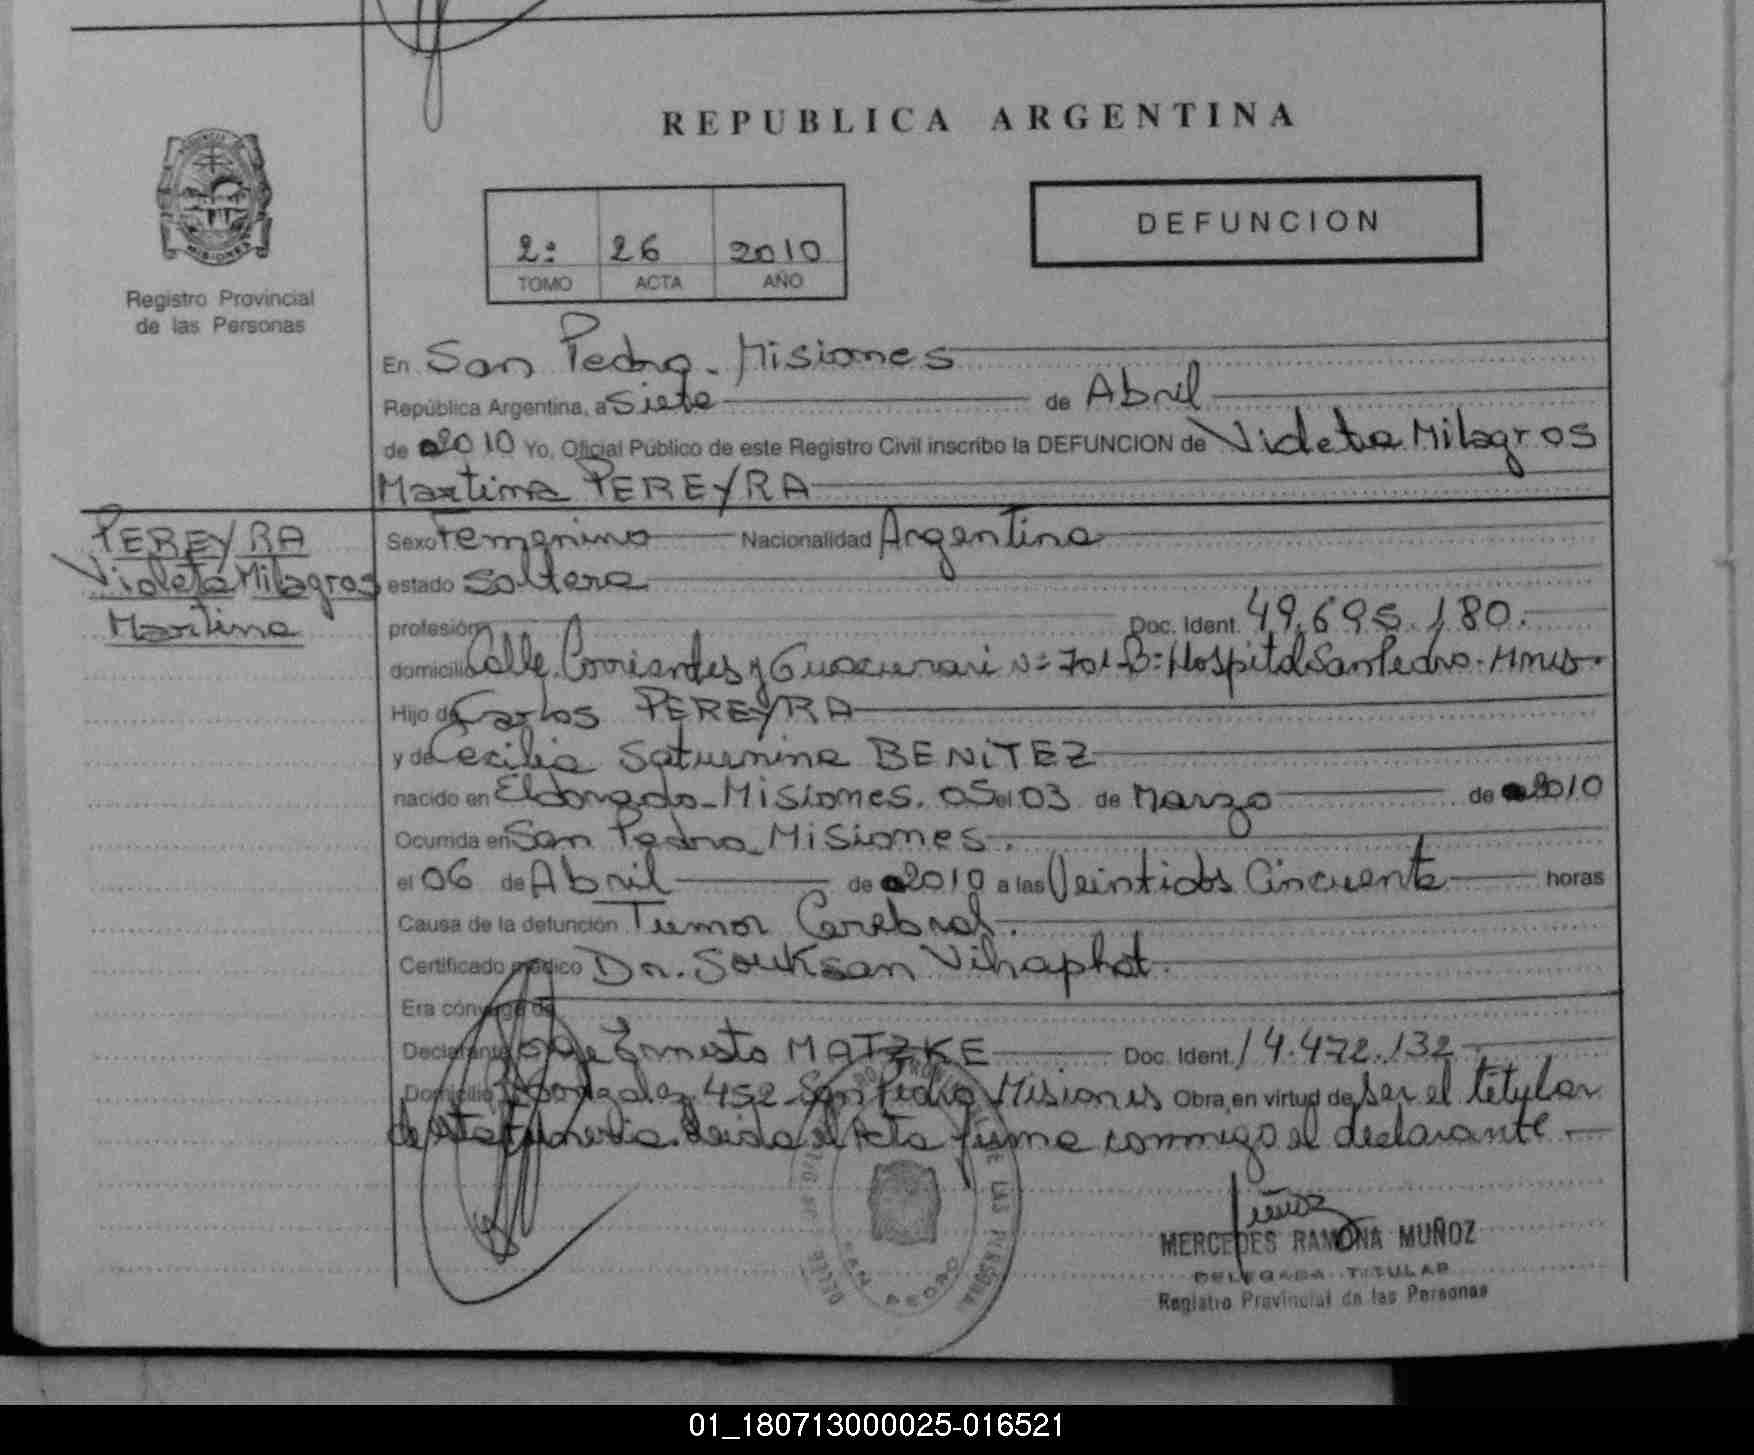 REPUBLICA ARGENTINA
DEFUNCION
2: 26 2010
TOMO ACTA AÑO
Registro Provincial
de las Personas
En San Pedro - Misiones
República Argentina, a Siete de Abril
de 2010 Yo, Oficial Público de este Registro Civil inscribo la DEFUNCION de Violeta Milagros
Martina PEREYRA
PEREYRA
Violeta Milagros
Martina
Sexo Femenino Nacionalidad Argentina
estado Soltera
profesión Doc. Ident. 49.695.180.
domicilio Calle Corrientes y Guacurari Nº 701 Bº Hospital San Pedro. Mnes.
Hijo de Carlos PEREYRA
y de Cecilia Saturnina BENITEZ
nacido en Eldorado - Misiones. 05 el 03 de Marzo de 2010
Ocurrida en San Pedro - Misiones.
el 06 de Abril de 2010 a las Veintidos Cincuenta horas
Causa de la defunción Tumor Cerebral.
Certificado médico Dr. Souksan Vihaphat.
Era cónyuge de
Declarante Jorge Ernesto MATZKE Doc. Ident. 14.472.132
Domicilio Gonzalez 452 San Pedro Misiones Obra en virtud de ser el titular
de esta funeraria. Leida el Acta firma conmigo el declarante
MERCEDES RAMONA MUÑOZ
DELEGADA TITULAR
Registro Provincial de las Personas
SAN PEDRO
01_180713000025-016521